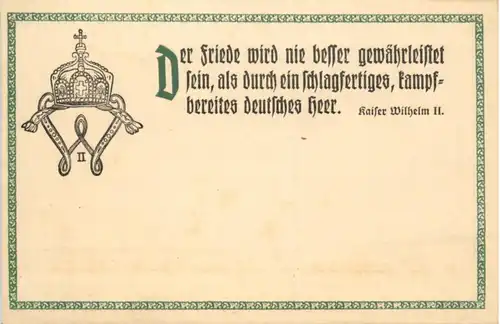 Der Friede wird nie besser gewährleistet
sein, als durch ein schlagfertiges, kampf-
bereites deutsches Heer. Kaiser Wilhelm II.
W
II